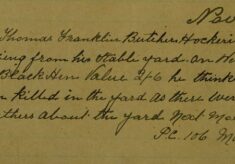 Nov
Thomas Franklin Butcher Hockeri
ing from his stable yard. on We
Black Hen Value 2/6 he think
killed in the yard as there wer
thers about the yard Next Mo
P.C. 106 M